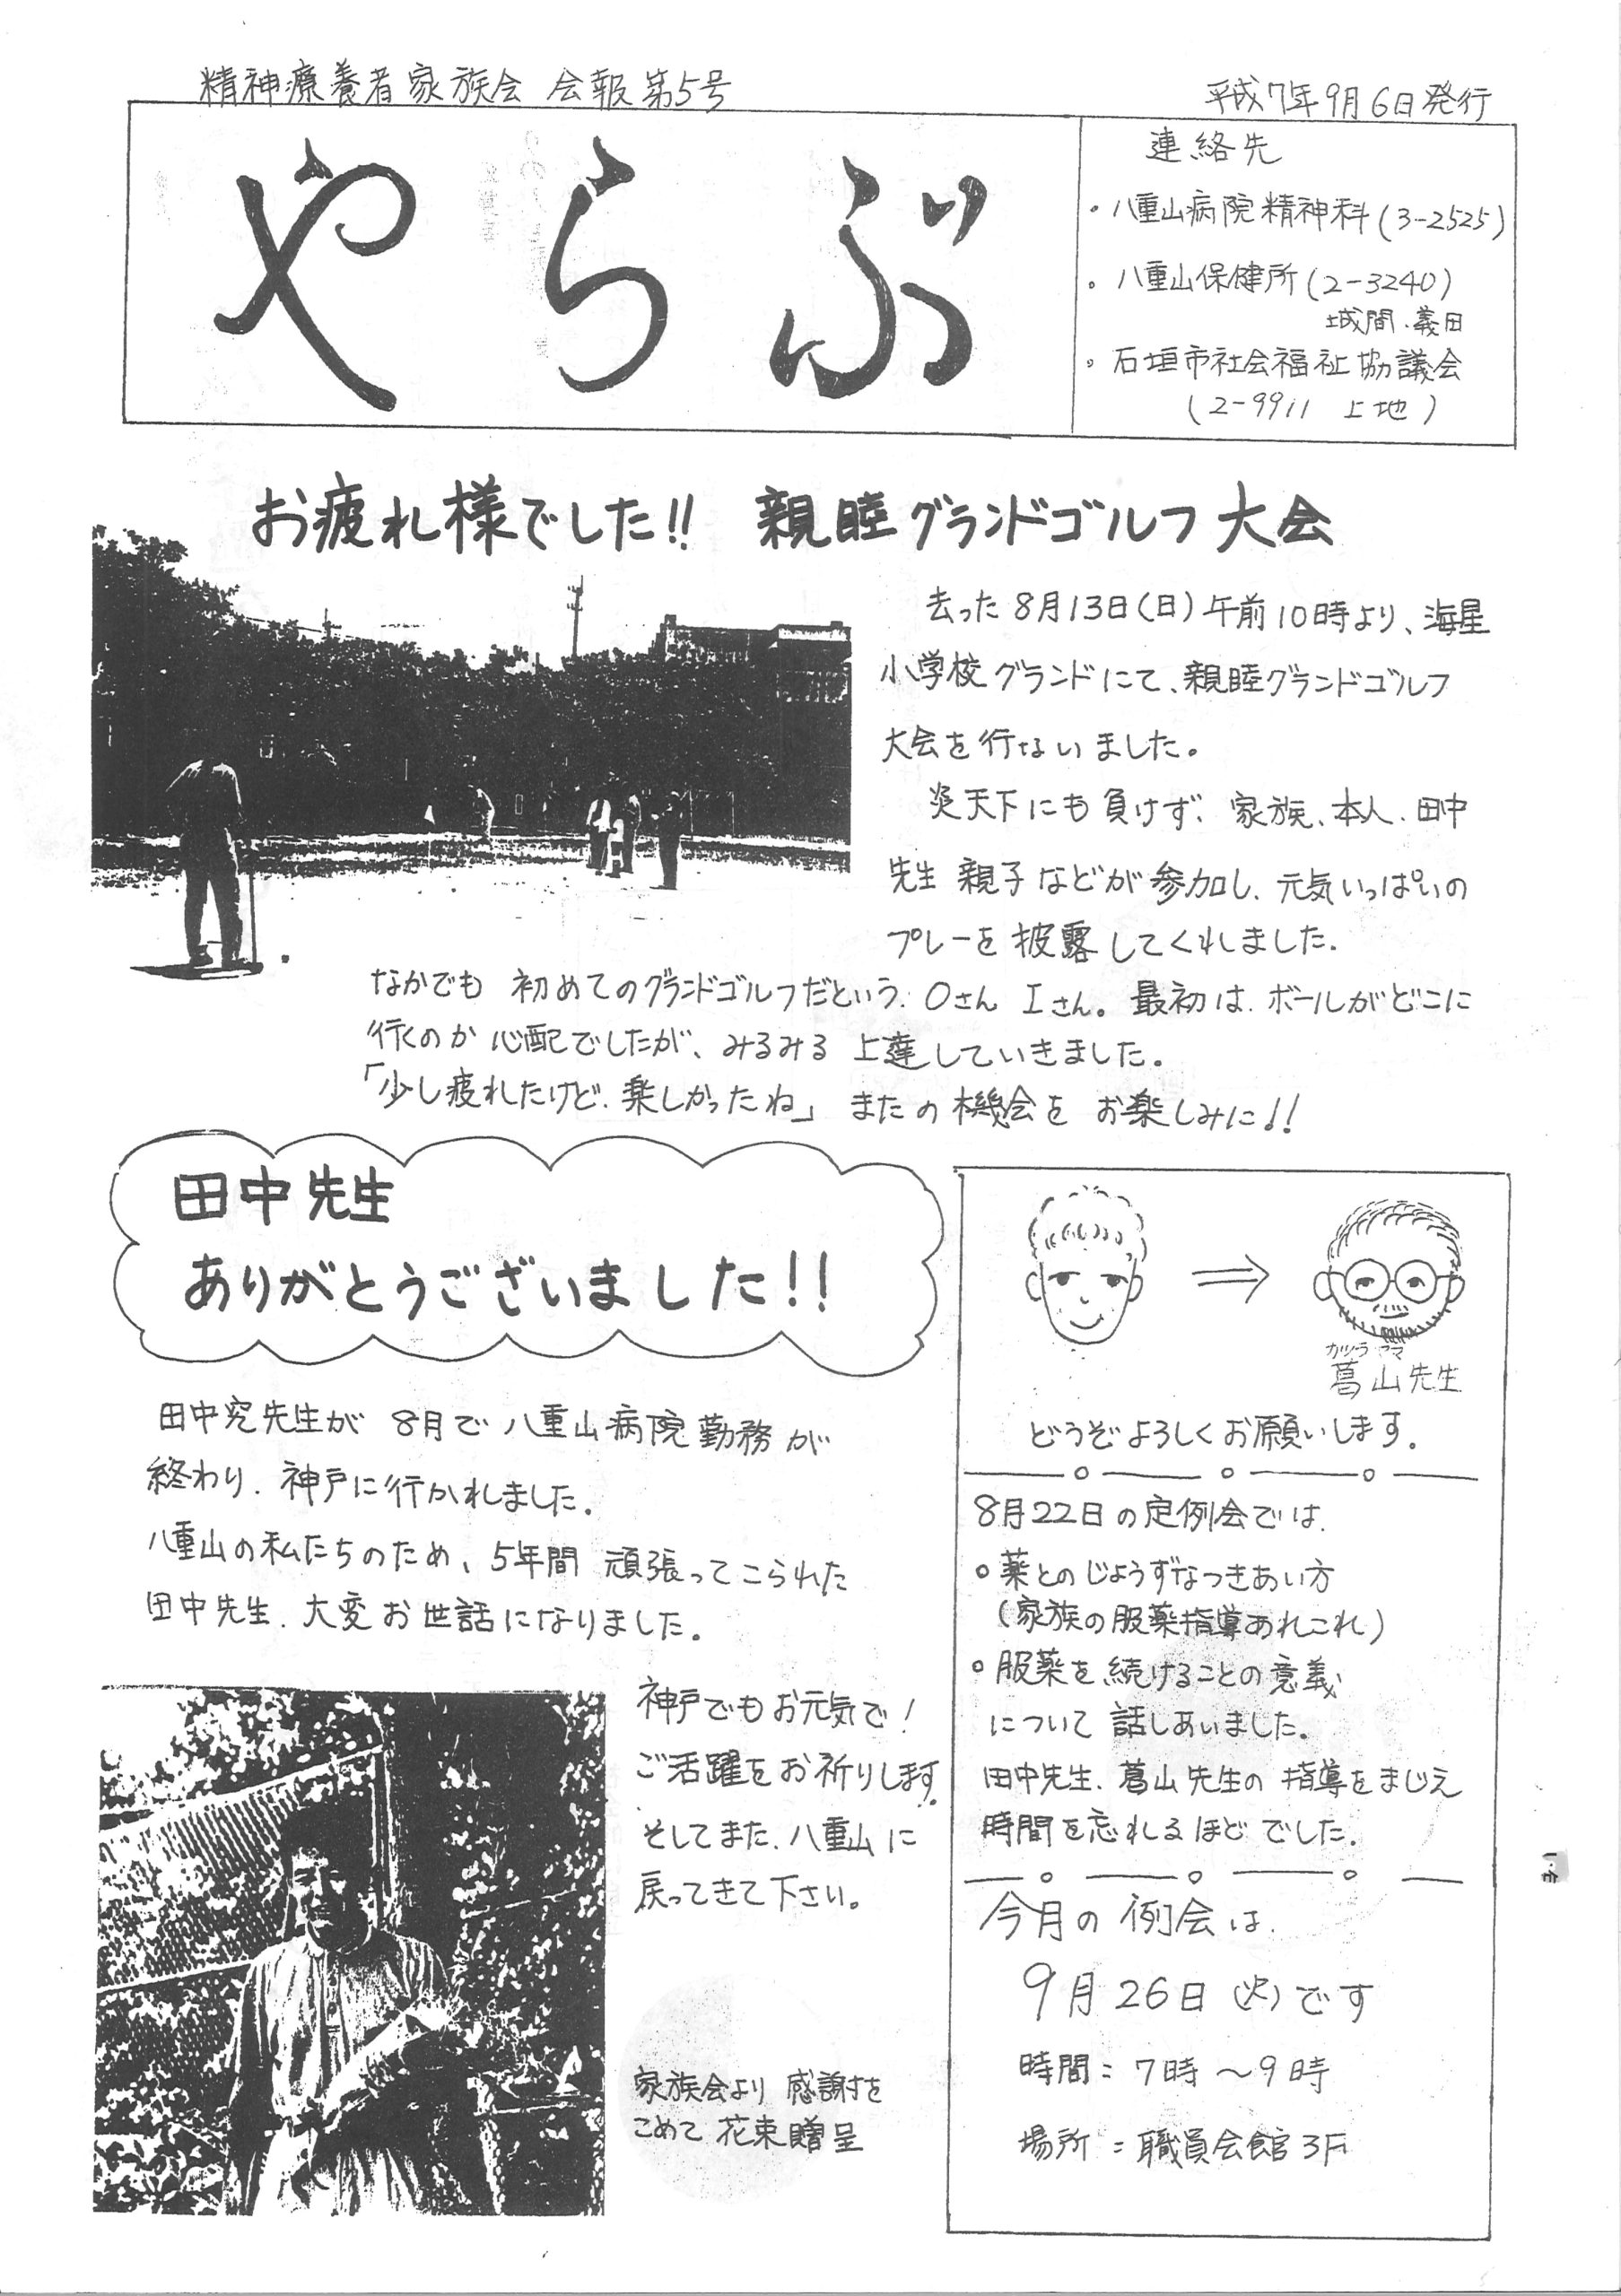 精神療養者家族会 会報第5号
平成7年9月6日発行
やらぶ
連絡先
・八重山病院精神科(3-2525)
。八重山保健所(2-3240)
城間・義田
。石垣市社会福祉協議会
(2-9911 上地)
お疲れ様でした!! 親睦グランドゴルフ大会
去った8月13日(日)午前10時より、海星
小学校グランドにて、親睦グランドゴルフ
大会を行ないました。
炎天下にも負けず、家族、本人、田中
先生親子などが参加し、元気いっぱいの
プレーを披露してくれました。
なかでも 初めてのグランドゴルフだという、Oさん Iさん。最初は、ボールがどこに
行くのか心配でしたが、みるみる上達していきました。
「少し疲れたけど、楽しかったね」またの機会を お楽しみに!!
田中先生
ありがとうございました!!
田中究先生が 8月で八重山病院勤務が
終わり、神戸に行かれました。
八重山の私たちのため、5年間 頑張ってこられた
田中先生、大変お世話になりました。
神戸でもお元気で!
ご活躍をお祈りします!
そしてまた、八重山に
戻ってきて下さい。
家族会より 感謝を
こめて 花束贈呈
⇒
カツラ ヤマ
葛山先生
どうぞよろしくお願いします。
8月22日の定例会では、
。薬とのじょうずなつきあい方
(家族の服薬指導あれこれ)
。服薬を続けることの意義
について 話しあいました。
田中先生、葛山先生の 指導をまじえ
時間を忘れるほど でした。
今月の 例会は、
9月26日(火)です
時間:7時～9時
場所:職員会館3F